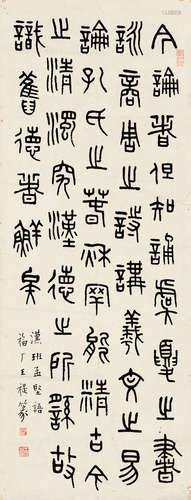 今論者但知誦虞夏之書
詠商周之詩講羲文之易
論孔氏之春秋罕能精古今
之清濁究漢德之所繇故
識舊德者鮮矣
漢班孟堅語
福厂王禔篆